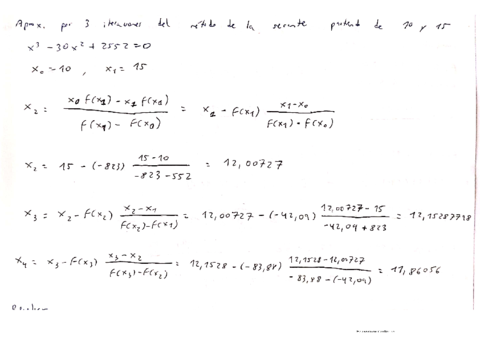 Aprox. por 3 iteraciones del método de la secante partend de 10 y 15
x³ - 30x² + 2552 = 0
x₀ = 10 , x₁ = 15
x₂ = (x₀ f(x₁) - x₁ f(x₁)) / (f(x₁) - f(x₀)) = x₁ - f(x₁) (x₁ - x₀) / (f(x₁) - f(x₀))
x₂ = 15 - (-823) (15 - 10) / (-823 - 552) = 12,00727
x₃ = x₂ - f(x₂) (x₂ - x₁) / (f(x₂) - f(x₁)) = 12,00727 - (-42,09) (12,00727 - 15) / (-42,09 + 823) = 12,15287798
x₄ = x₃ - f(x₃) (x₃ - x₂) / (f(x₃) - f(x₂)) = 12,1528 - (-83,88) (12,1528 - 12,00727) / (-83,88 - (-42,09)) = 11,86056